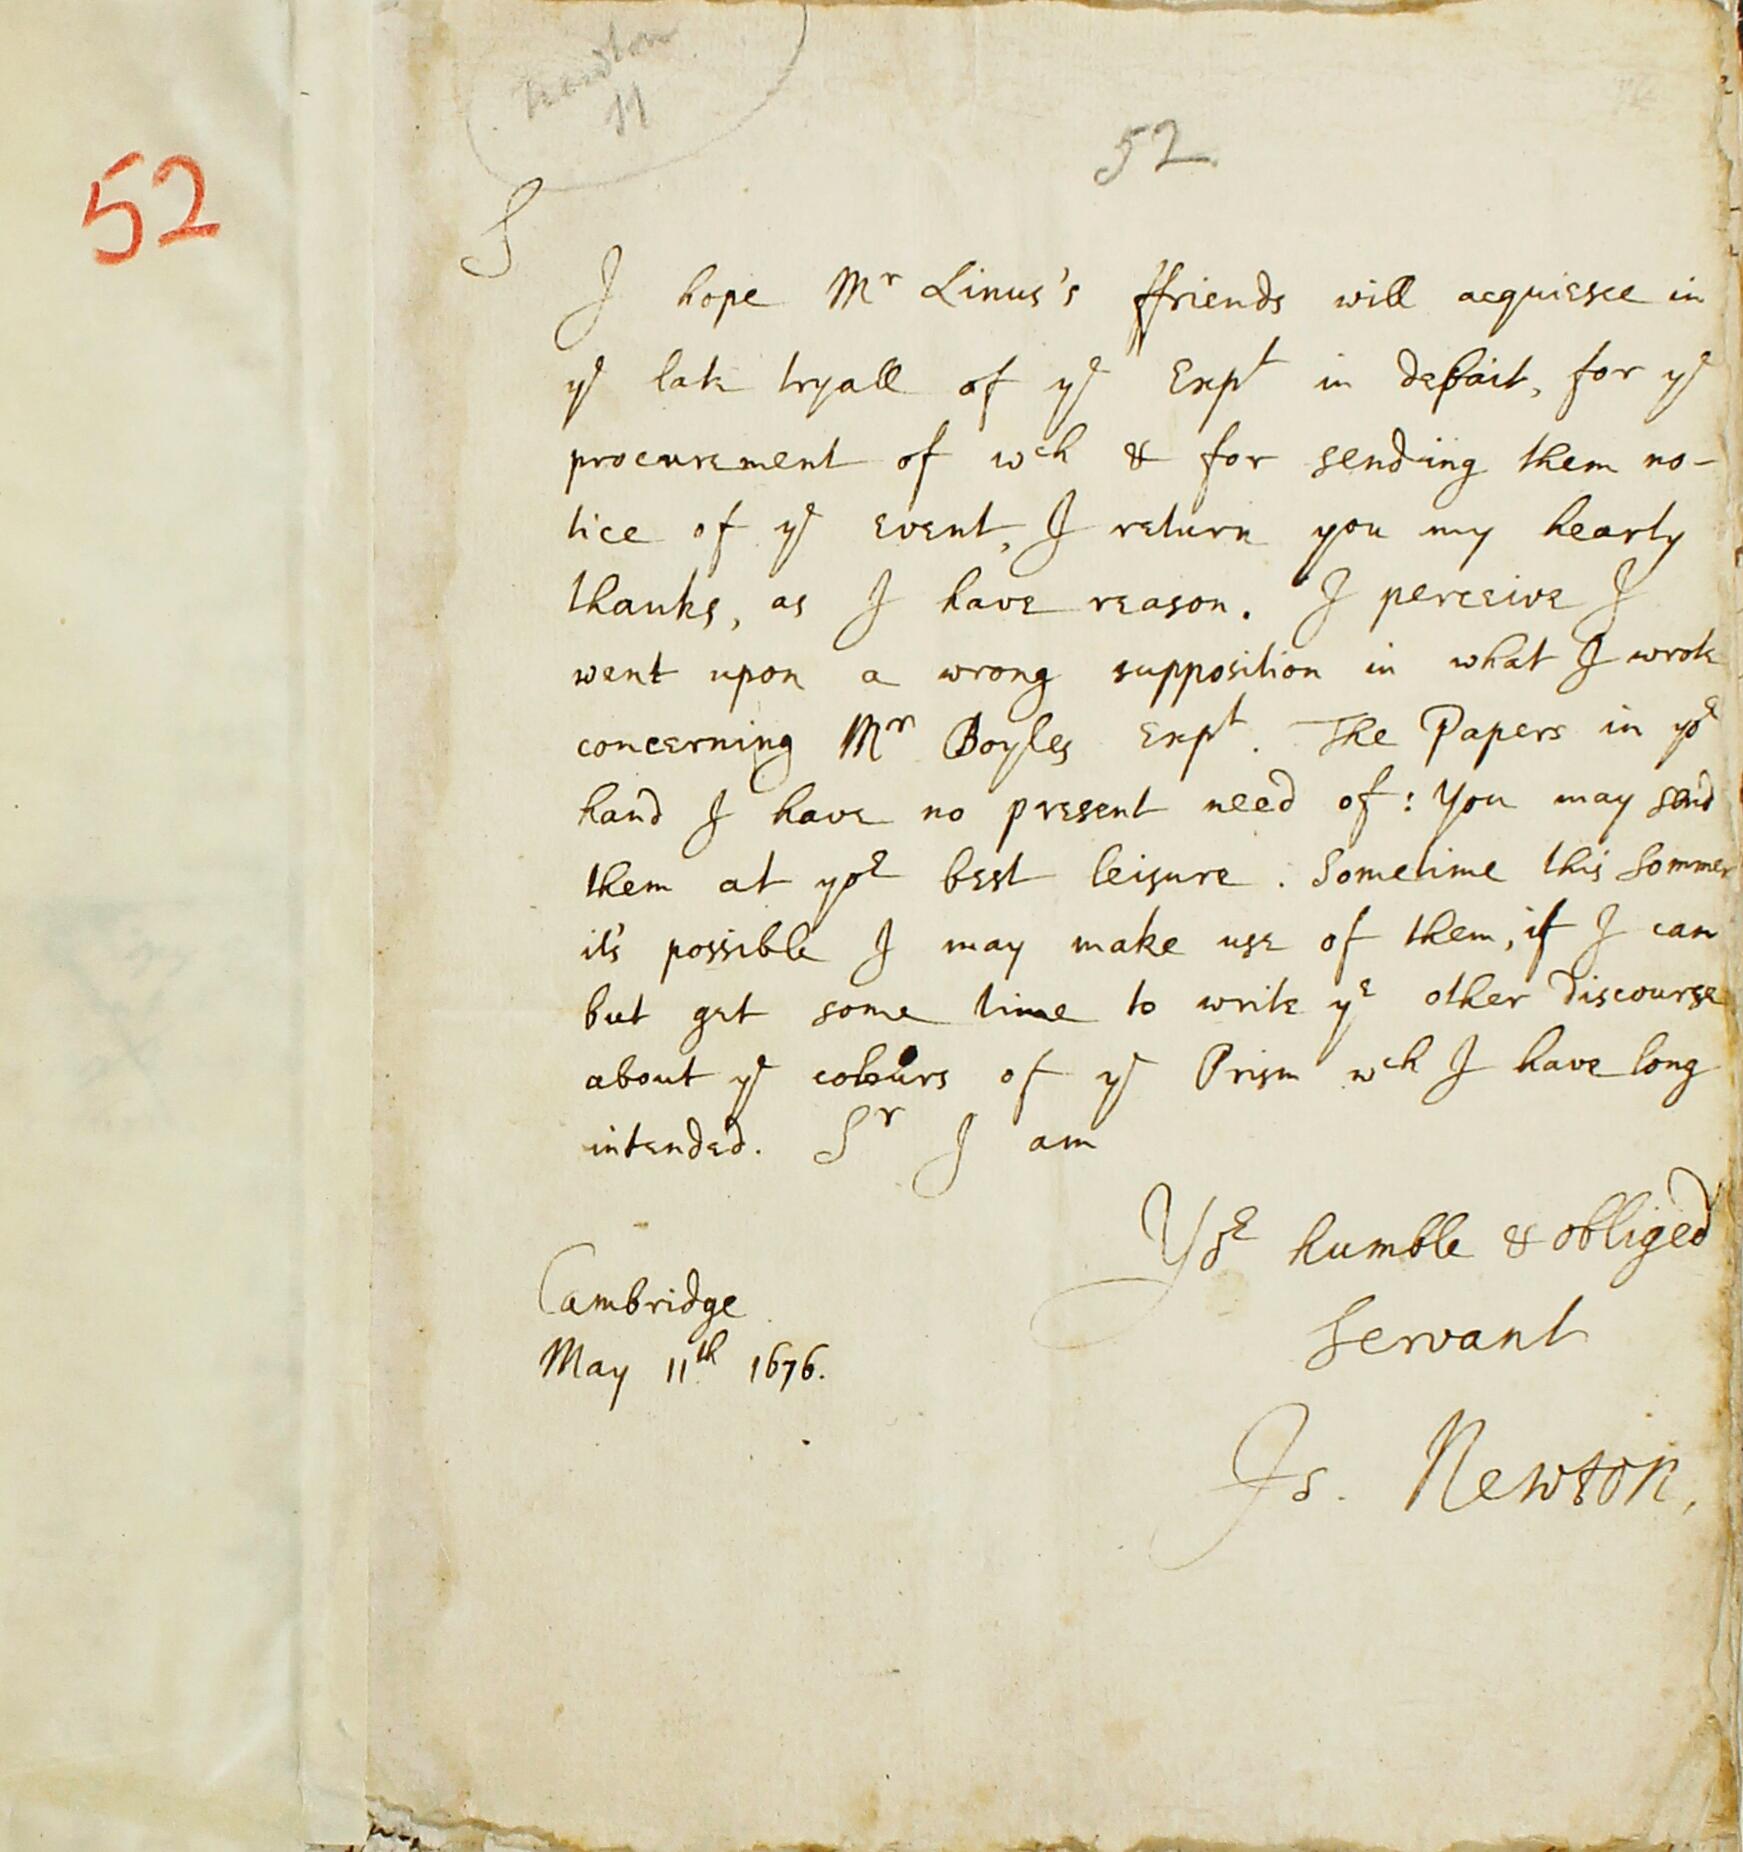 52
52
S
I hope Mr Linus's ffriends will acquiesce in
ye late tryall of ye Expt in debait, for ye
procurement of wch & for sending them no-
tice of ye event, I return you my hearty
thanks, as I have reason. I perceive I
went upon a wrong supposition in what I wrote
concerning Mr Boyles Expt. The Papers in yor
hand I have no present need of: You may send
them at yor best leisure. Sometime this Sommer
it's possible I may make use of them, if I can
but get some time to write ye other discourse
about ye colours of ye Prism wch I have long
intended. Sr I am
Yor humble & obliged
Servant
Cambridge
May 11th 1676.
Is. Newton.